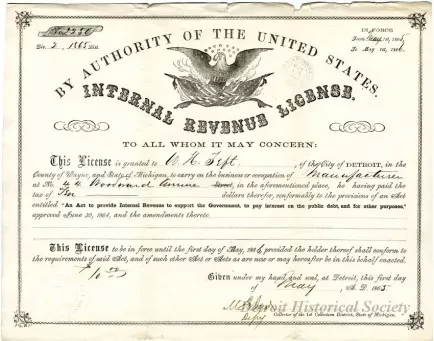 No 2250
IN FORCE
From May 1st, 1865,
Div. 2, 1865 Dist.
To May 1st, 1866.
BY AUTHORITY OF THE UNITED STATES.
INTERNAL REVENUE LICENSE.
TO ALL WHOM IT MAY CONCERN:
This License is granted to W. H. Tefft, of the City of DETROIT, in the
County of Wayne, and State of Michigan, to carry on the business or occupation of Manufacturer
at No. 44 Woodward Avenue Street, in the aforementioned place, he having paid the
tax of Ten dollars therefor, conformably to the provisions of an Act
entitled "An Act to provide Internal Revenue to support the Government, to pay interest on the public debt, and for other purposes,"
approved June 30, 1864, and the amendments thereto.
This License to be in force until the first day of May, 1866, provided the holder thereof shall conform to the
requirements of said Act, and of such other Act or Acts as are now or may hereafter be in this behalf enacted.
$10 00
Given under my hand and seal, at Detroit, this first day
of May A. D. 1865
Depy Collector of the 1st Collection District, State of Michigan.
Detroit Historical Society